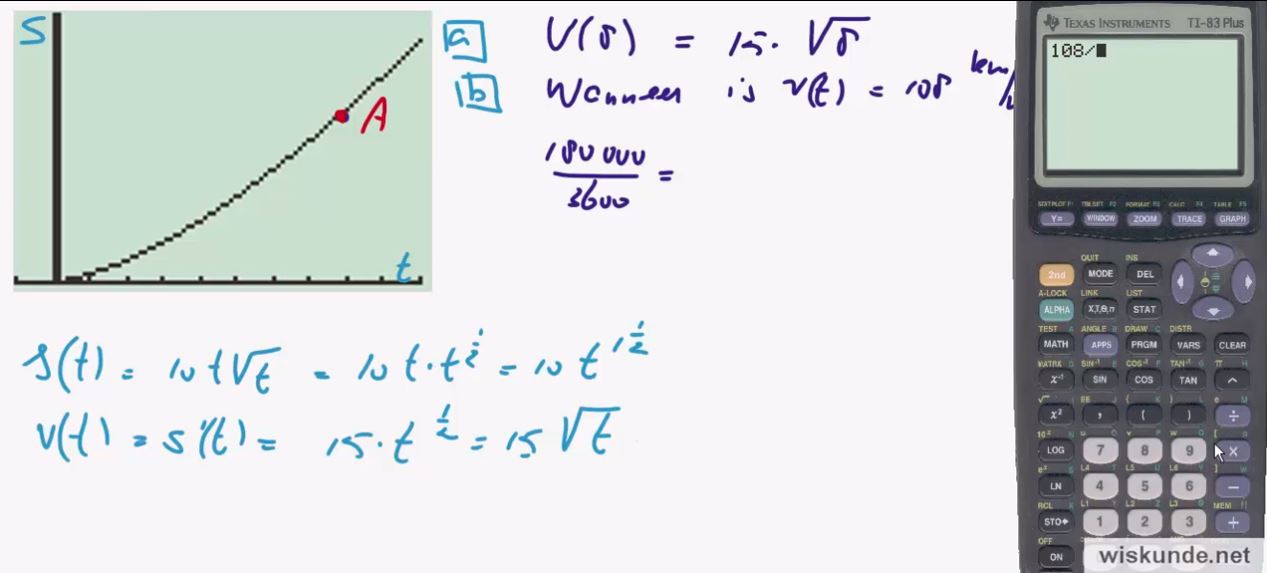 S
A
t
a V(8) = 15 · √8
b Wanneer is v(t) = 108 km/
180 000
3600 =
s(t) = 10 t √t = 10 t · t^½ = 10 t^1½
v(t) = s'(t) = 15 · t^½ = 15 √t
TEXAS INSTRUMENTS TI-83 Plus
108/
STAT PLOT F1 TBLSET F2 FORMAT F3 CALC F4 TABLE F5
Y= WINDOW ZOOM TRACE GRAPH
QUIT INS
2nd MODE DEL
A-LOCK LINK LIST
ALPHA X,T,θ,n STAT
TEST A ANGLE B DRAW C DISTR
MATH APPS PRGM VARS CLEAR
MATRX D SIN⁻¹ E COS⁻¹ F TAN⁻¹ G π H
x⁻¹ SIN COS TAN ^
√ I EE J { K } L e M
x² , ( ) ÷
10ˣ N u O v P w Q [ R
LOG 7 8 9 ×
eˣ S L4 T L5 U L6 V ] W
LN 4 5 6 −
RCL X L1 Y L2 Z L3 θ MEM "
STO▸ 1 2 3 +
OFF
ON
wiskunde.net